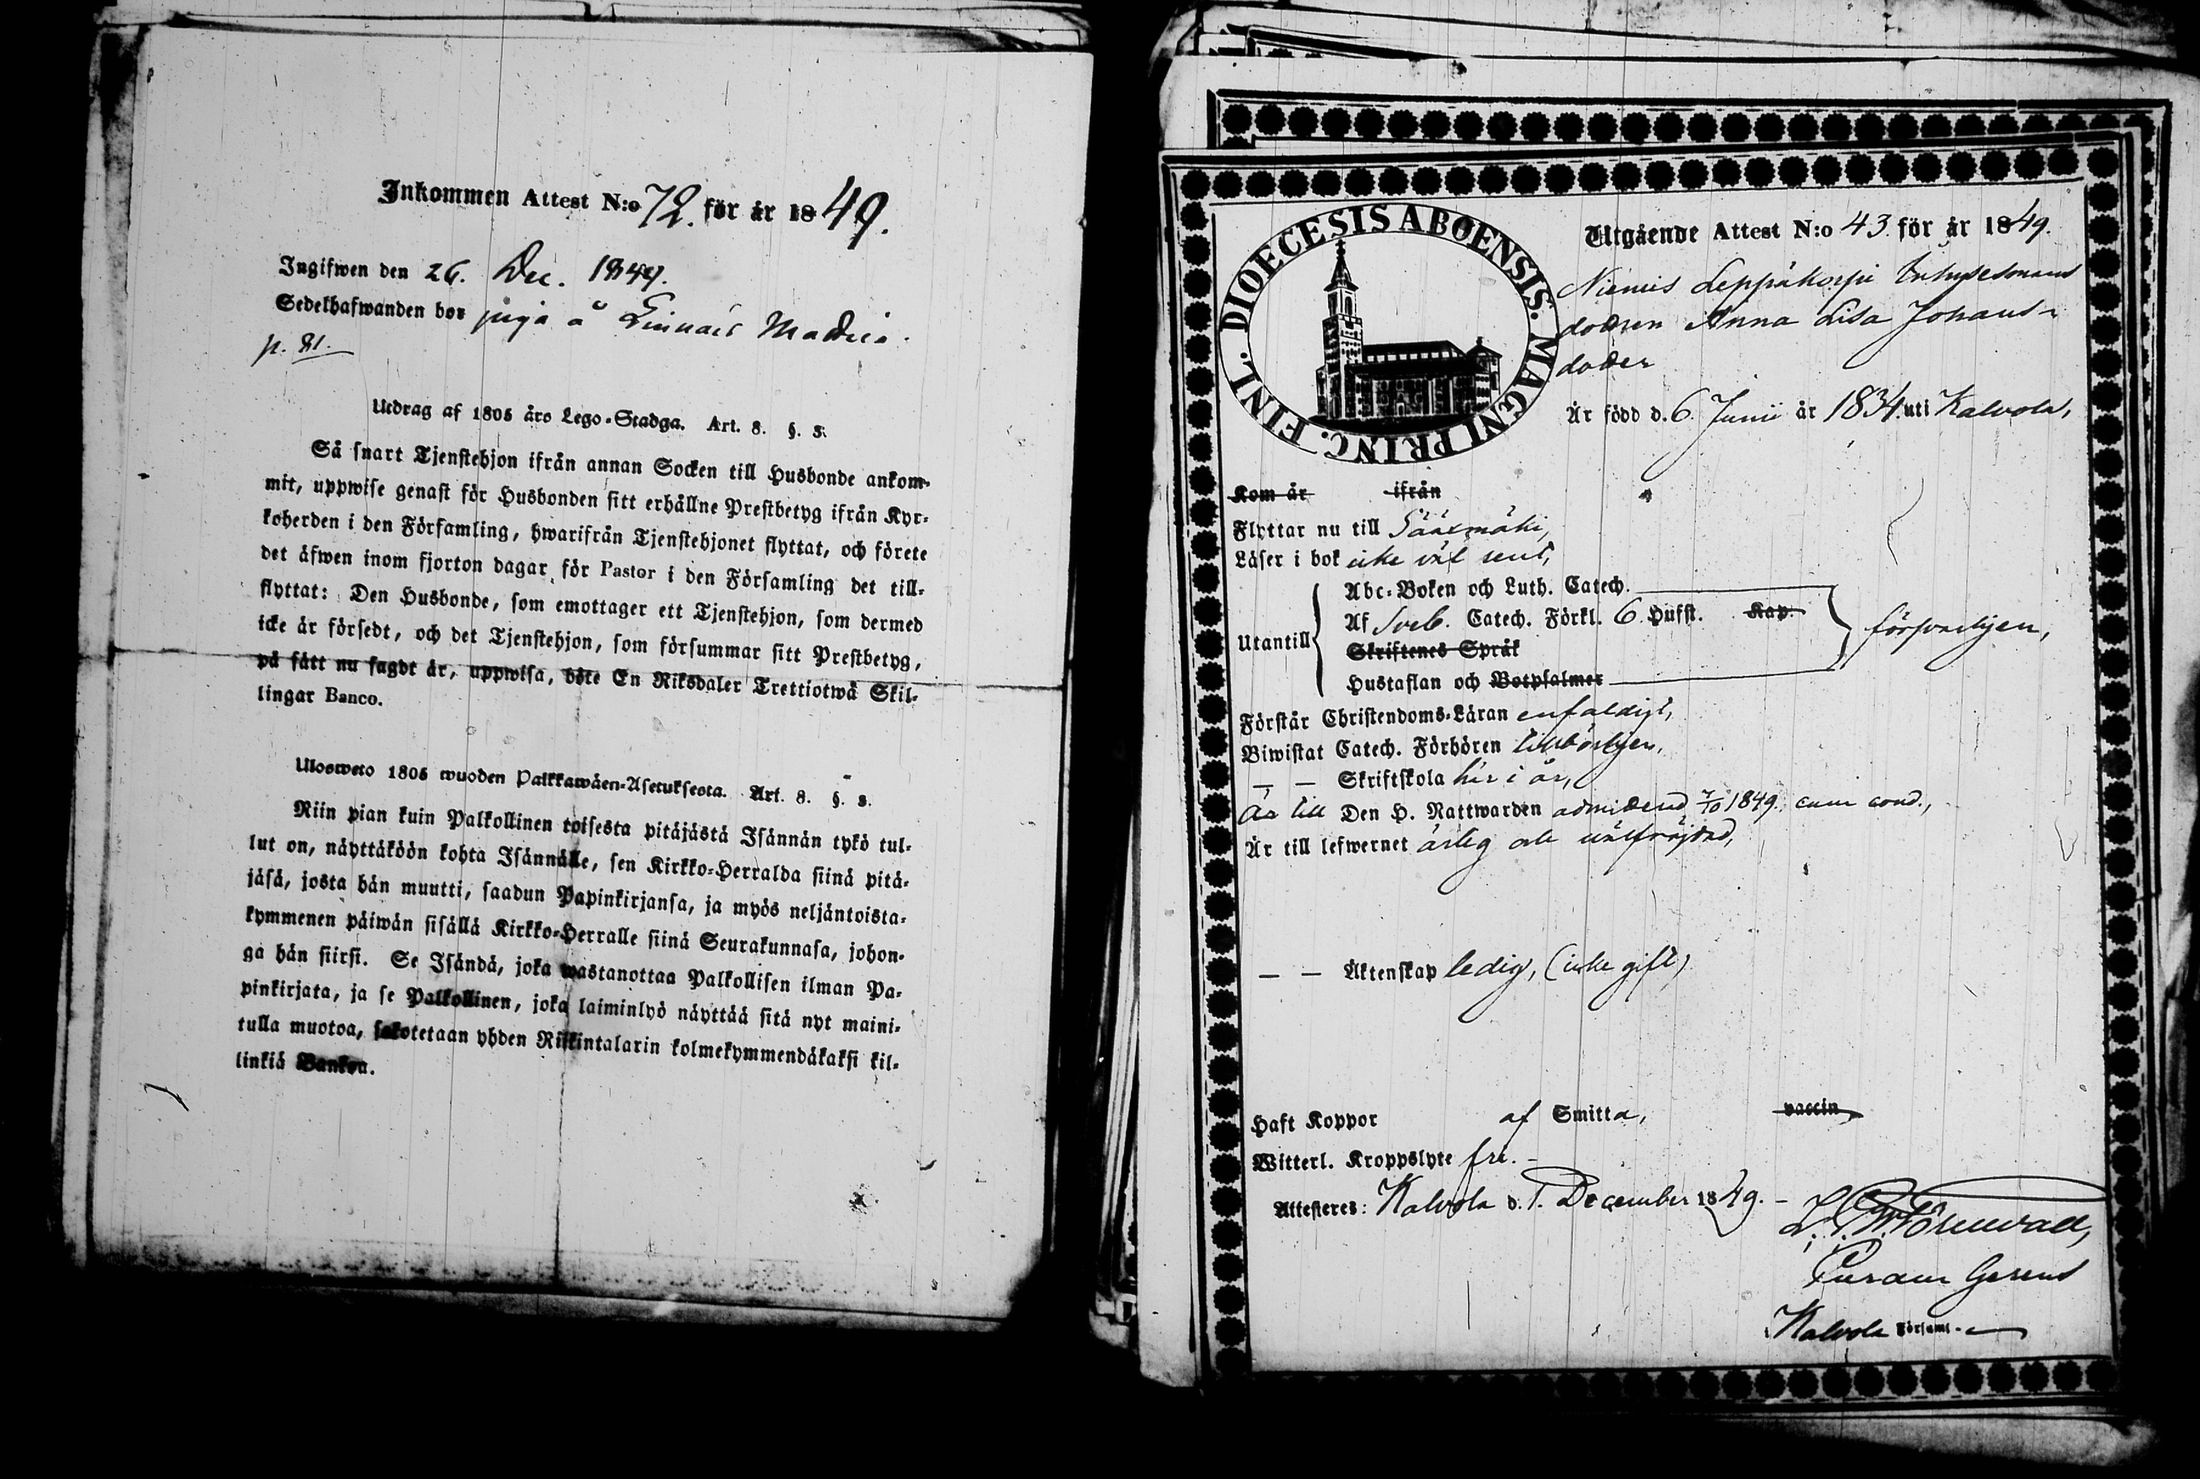 Inkommen Attest N:o 72. för år 1849.
Ingifwen den 26. Dec. 1849.
Sedelhafwanden bor piga å Madici.
p. 81.
Utdrag af 1805 års Lego-Stadga. Art. 8. §. 3.
Så snart Tjenstehjon ifrån annan Socken till Husbonde ankom-
mit, uppwise genast för Husbonden sitt erhållne Prestbetyg ifrån Kyr-
koherden i den Församling, hwarifrån Tjenstehjonet flyttat, och förete
det äfwen inom fjorton dagar för Pastor i den Församling det till-
flyttat: Den Husbonde, som emottager ett Tjenstehjon, som dermed
icke är försedt, och det Tjenstehjon, som försummar sitt Prestbetyg,
på sätt nu sagdt är, uppwisa, böte En Riksdaler Trettiotwå Skil-
lingar Banco.
Ulosweto 1805 wuoden Palkkawäen-Asetuksesta. Art. 8. §. 3.
Niin pian kuin Palkollinen toisesta pitäjästä Isännän tykö tul-
lut on, näyttäköön kohta Isännälle, sen Kirkko-Herralda siinä pitä-
jäsä, josta hän muutti, saadun Papinkirjansa, ja myös neljäntoista-
kymmenen päiwän sisällä Kirkko-Herralle siinä Seurakunnasa, johon-
ga hän siirsi. Se Isändä, joka wastanottaa Palkollisen ilman Pa-
pinkirjata, ja se Palkollinen, joka laiminlyö näyttää sitä nyt maini-
tulla muotoa, sakotetaan yhden Riikintalarin kolmekymmendäkaksi kil-
linkiä Bankoa.
DIOECESIS ABOENSIS. MAGNI PRINC. FINL.
Utgående Attest N:o 43 för år 1849.
Niemis Leppäkorpi Inhysesmans
dottren Anna Lisa Johans-
dotter
Är född d. 6 Junii år 1834 uti Kalvola,
Kom år ifrån
Flyttar nu till Sääxmäki,
Läser i bok icke väl rent,
Abc-Boken och Luth. Catech.
Utantill Af Sveb. Catech. Förkl. 6 Hufst. Kap. försvarligen,
Skriftenes Språk
Hustaflan och Botpsalmer
Förstår Christendoms-Läran enfaldigt,
Biwistat Catech. Förhören tillbörligen,
— — Skriftskola här i år,
Är till Den H. Nattwarden admitterad 7/10 1849. cum cond.,
Är till lefwernet ärlig och välfräjdad,
— — Äktenskap ledig, (icke gift)
Haft Koppor af Smitta, vaccin
Witterl. Kroppslyte fri. –
Attesteres: Kalvola d. 1. December 1849. –
Curam Gerens
Kalvola Församl.